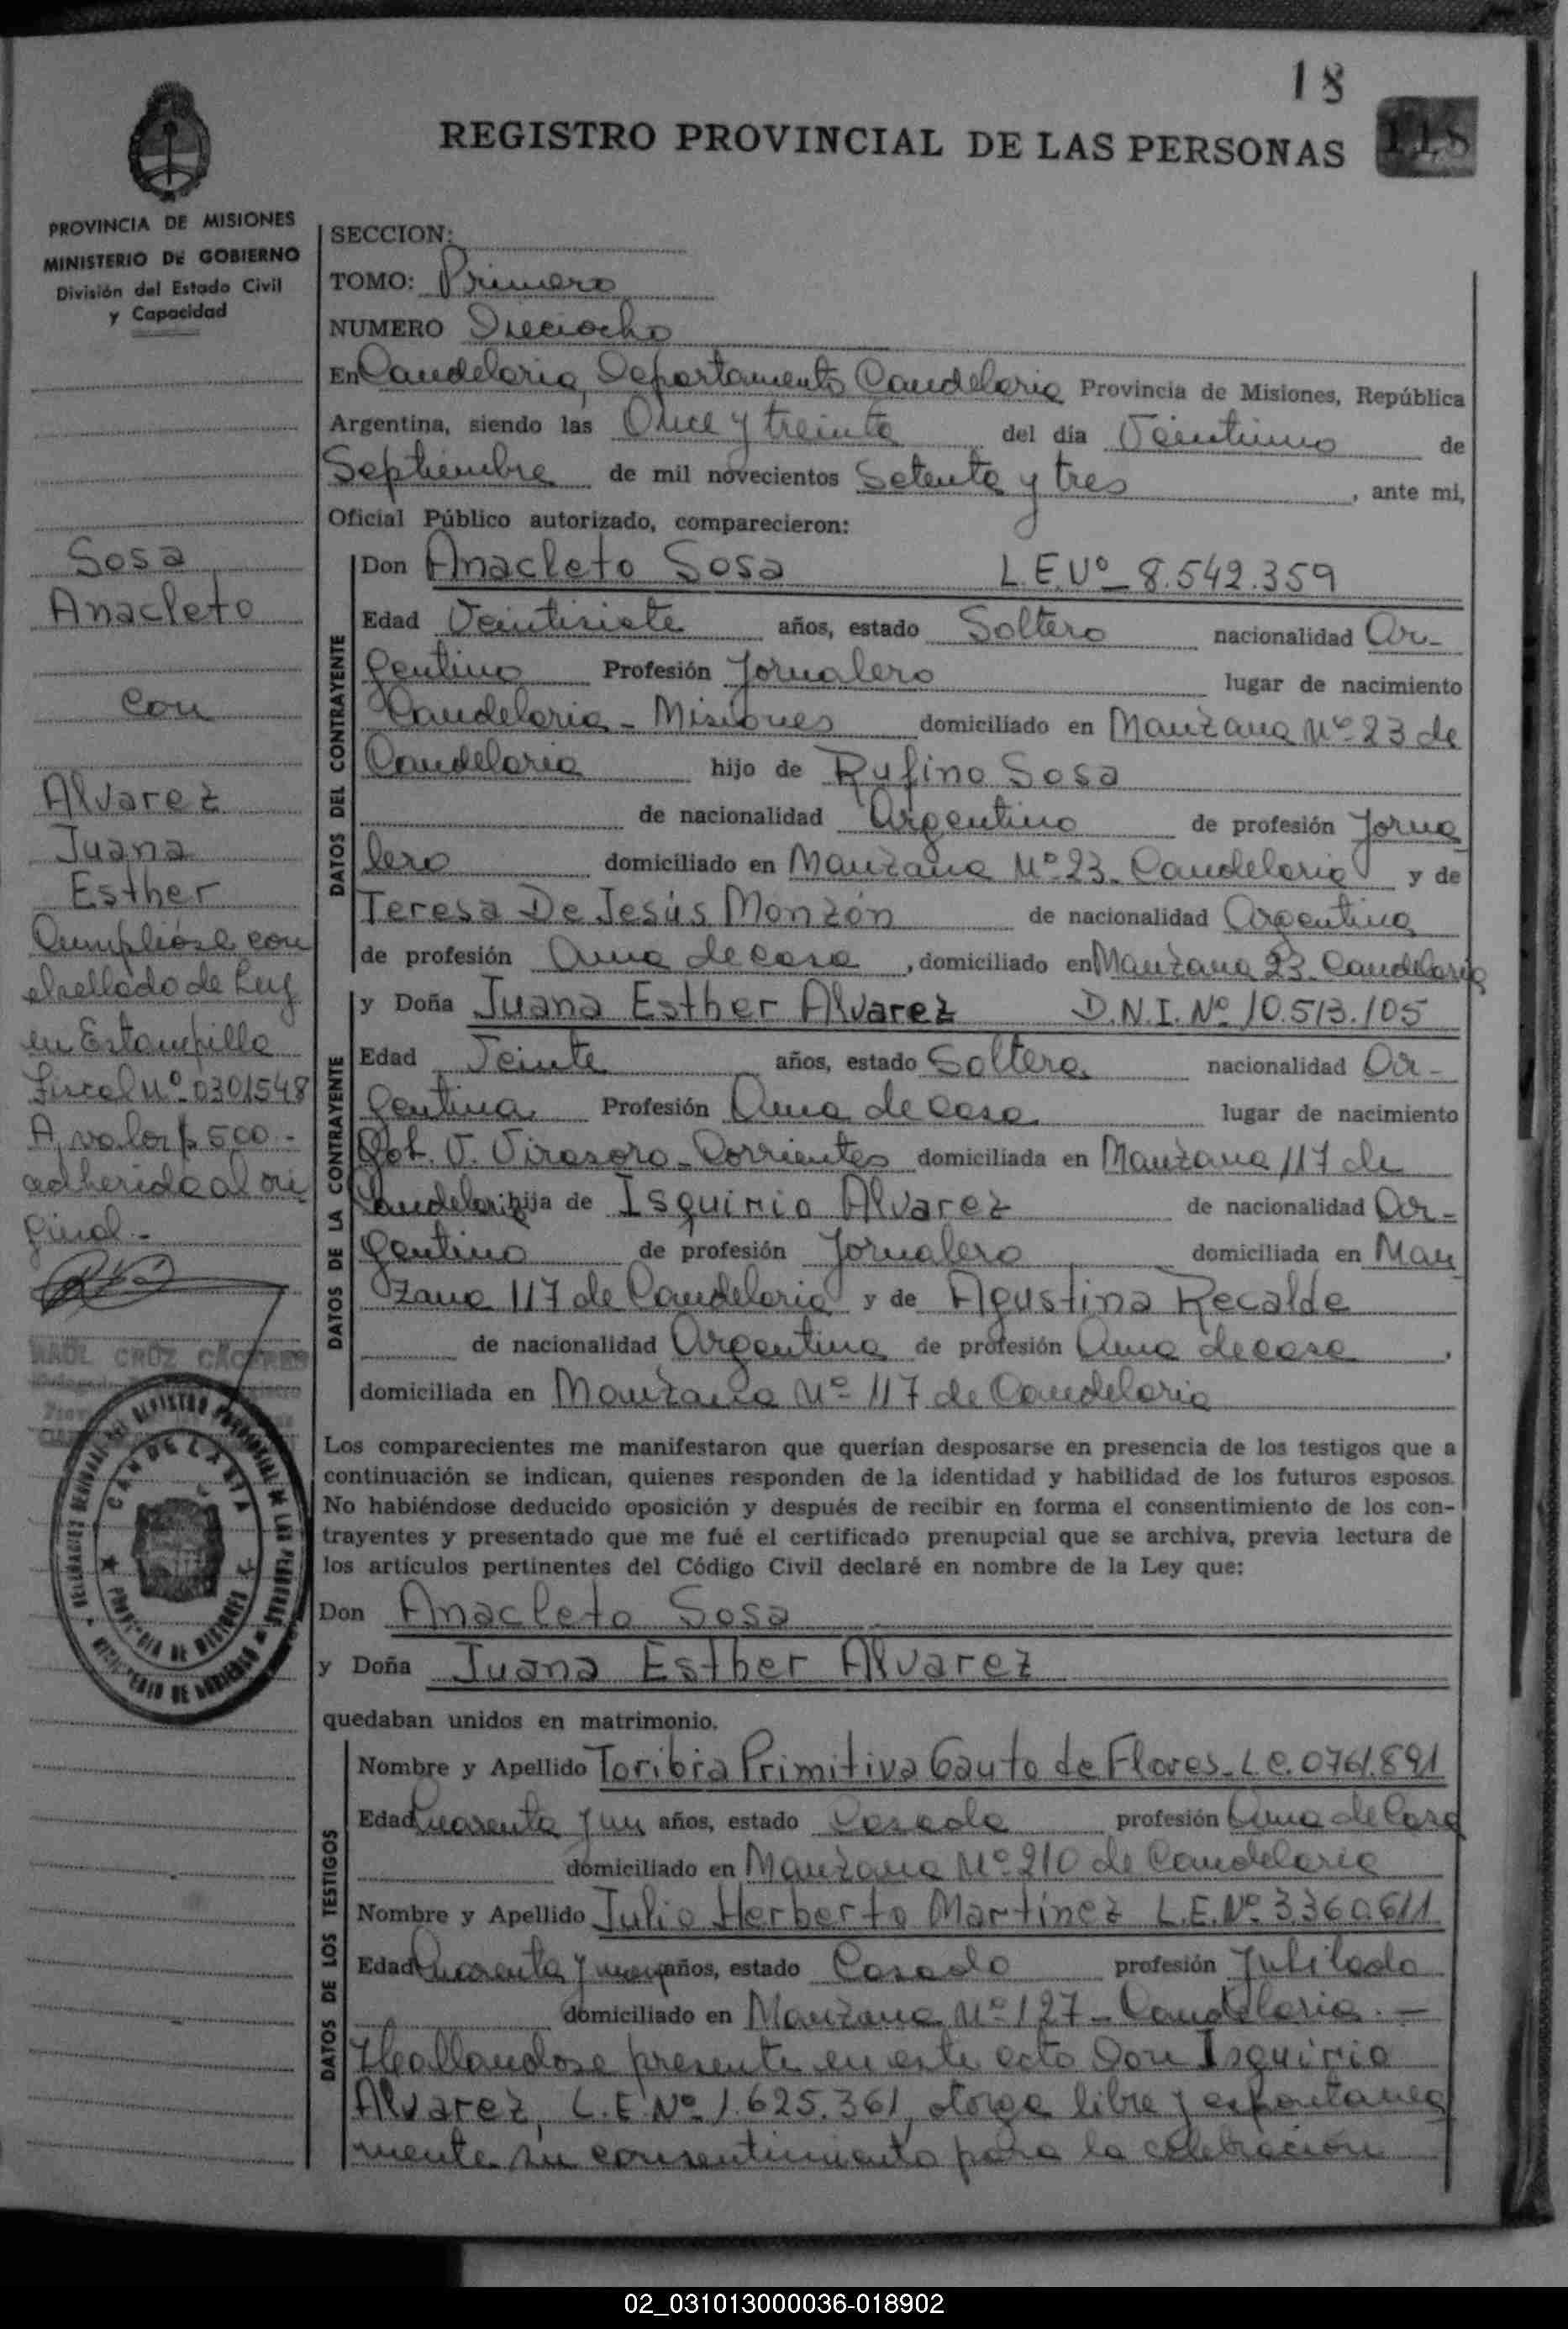 18
REGISTRO PROVINCIAL DE LAS PERSONAS
118
PROVINCIA DE MISIONES
MINISTERIO DE GOBIERNO
División del Estado Civil
y Capacidad
Sosa
Anacleto
con
Alvarez
Juana
Esther
Cumplióse con
el sellado de Ley
en Estampilla
Fiscal Nº 0301548
A valor $ 500.-
adherida al ori
ginal.-
RAUL CRUZ CACERES
CANDELARIA
PROVINCIA DE MISIONES
MINISTERIO DE GOBIERNO
SECCION:
TOMO: Primero
NUMERO Dieciocho
En Candelaria, Departamento Candelaria Provincia de Misiones, República
Argentina, siendo las Once y treinta del día Veintiuno de
Septiembre de mil novecientos Setenta y tres, ante mi,
Oficial Público autorizado, comparecieron:
DATOS DEL CONTRAYENTE
Don Anacleto Sosa L.E.Nº 8.542.359
Edad Veintisiete años, estado Soltero nacionalidad Ar-
gentino Profesión Jornalero lugar de nacimiento
Candelaria - Misiones domiciliado en Manzana Nº 23 de
Candelaria hijo de Rufino Sosa
de nacionalidad Argentino de profesión Jorna
lero domiciliado en Manzana Nº 23. Candelaria y de
Teresa De Jesús Monzón de nacionalidad Argentina
de profesión Ama de casa, domiciliado en Manzana 23. Candelaria
DATOS DE LA CONTRAYENTE
y Doña Juana Esther Alvarez D.N.I. Nº 10.513.105
Edad Veinte años, estado Soltera nacionalidad Ar-
gentina Profesión Ama de casa lugar de nacimiento
Gob. V. Virasoro - Corrientes domiciliada en Manzana 117 de
Candelaria hija de Isquirio Alvarez de nacionalidad Ar-
gentino de profesión Jornalero domiciliada en Man
zana 117 de Candelaria y de Agustina Recalde
de nacionalidad Argentina de profesión Ama de casa,
domiciliada en Manzana Nº 117 de Candelaria
Los comparecientes me manifestaron que querían desposarse en presencia de los testigos que a
continuación se indican, quienes responden de la identidad y habilidad de los futuros esposos.
No habiéndose deducido oposición y después de recibir en forma el consentimiento de los con-
trayentes y presentado que me fué el certificado prenupcial que se archiva, previa lectura de
los artículos pertinentes del Código Civil declaré en nombre de la Ley que:
Don Anacleto Sosa
y Doña Juana Esther Alvarez
quedaban unidos en matrimonio.
DATOS DE LOS TESTIGOS
Nombre y Apellido Toribia Primitiva Gauto de Flores - L.C. 0761.891
Edad Cuarenta y un años, estado Casada profesión Ama de Casa
domiciliado en Manzana Nº 210 de Candelaria
Nombre y Apellido Julio Herberto Martínez L.E.Nº 3.360.611
Edad Cuarenta y años, estado Casado profesión Jubilado
domiciliado en Manzana Nº 127 - Candelaria.-
Heallandose presente en este acto Don Isquirio
Alvarez, L.E.Nº 1.625.361, otorga libre y espontanea
mente su consentimiento para la celebración
02_031013000036-018902